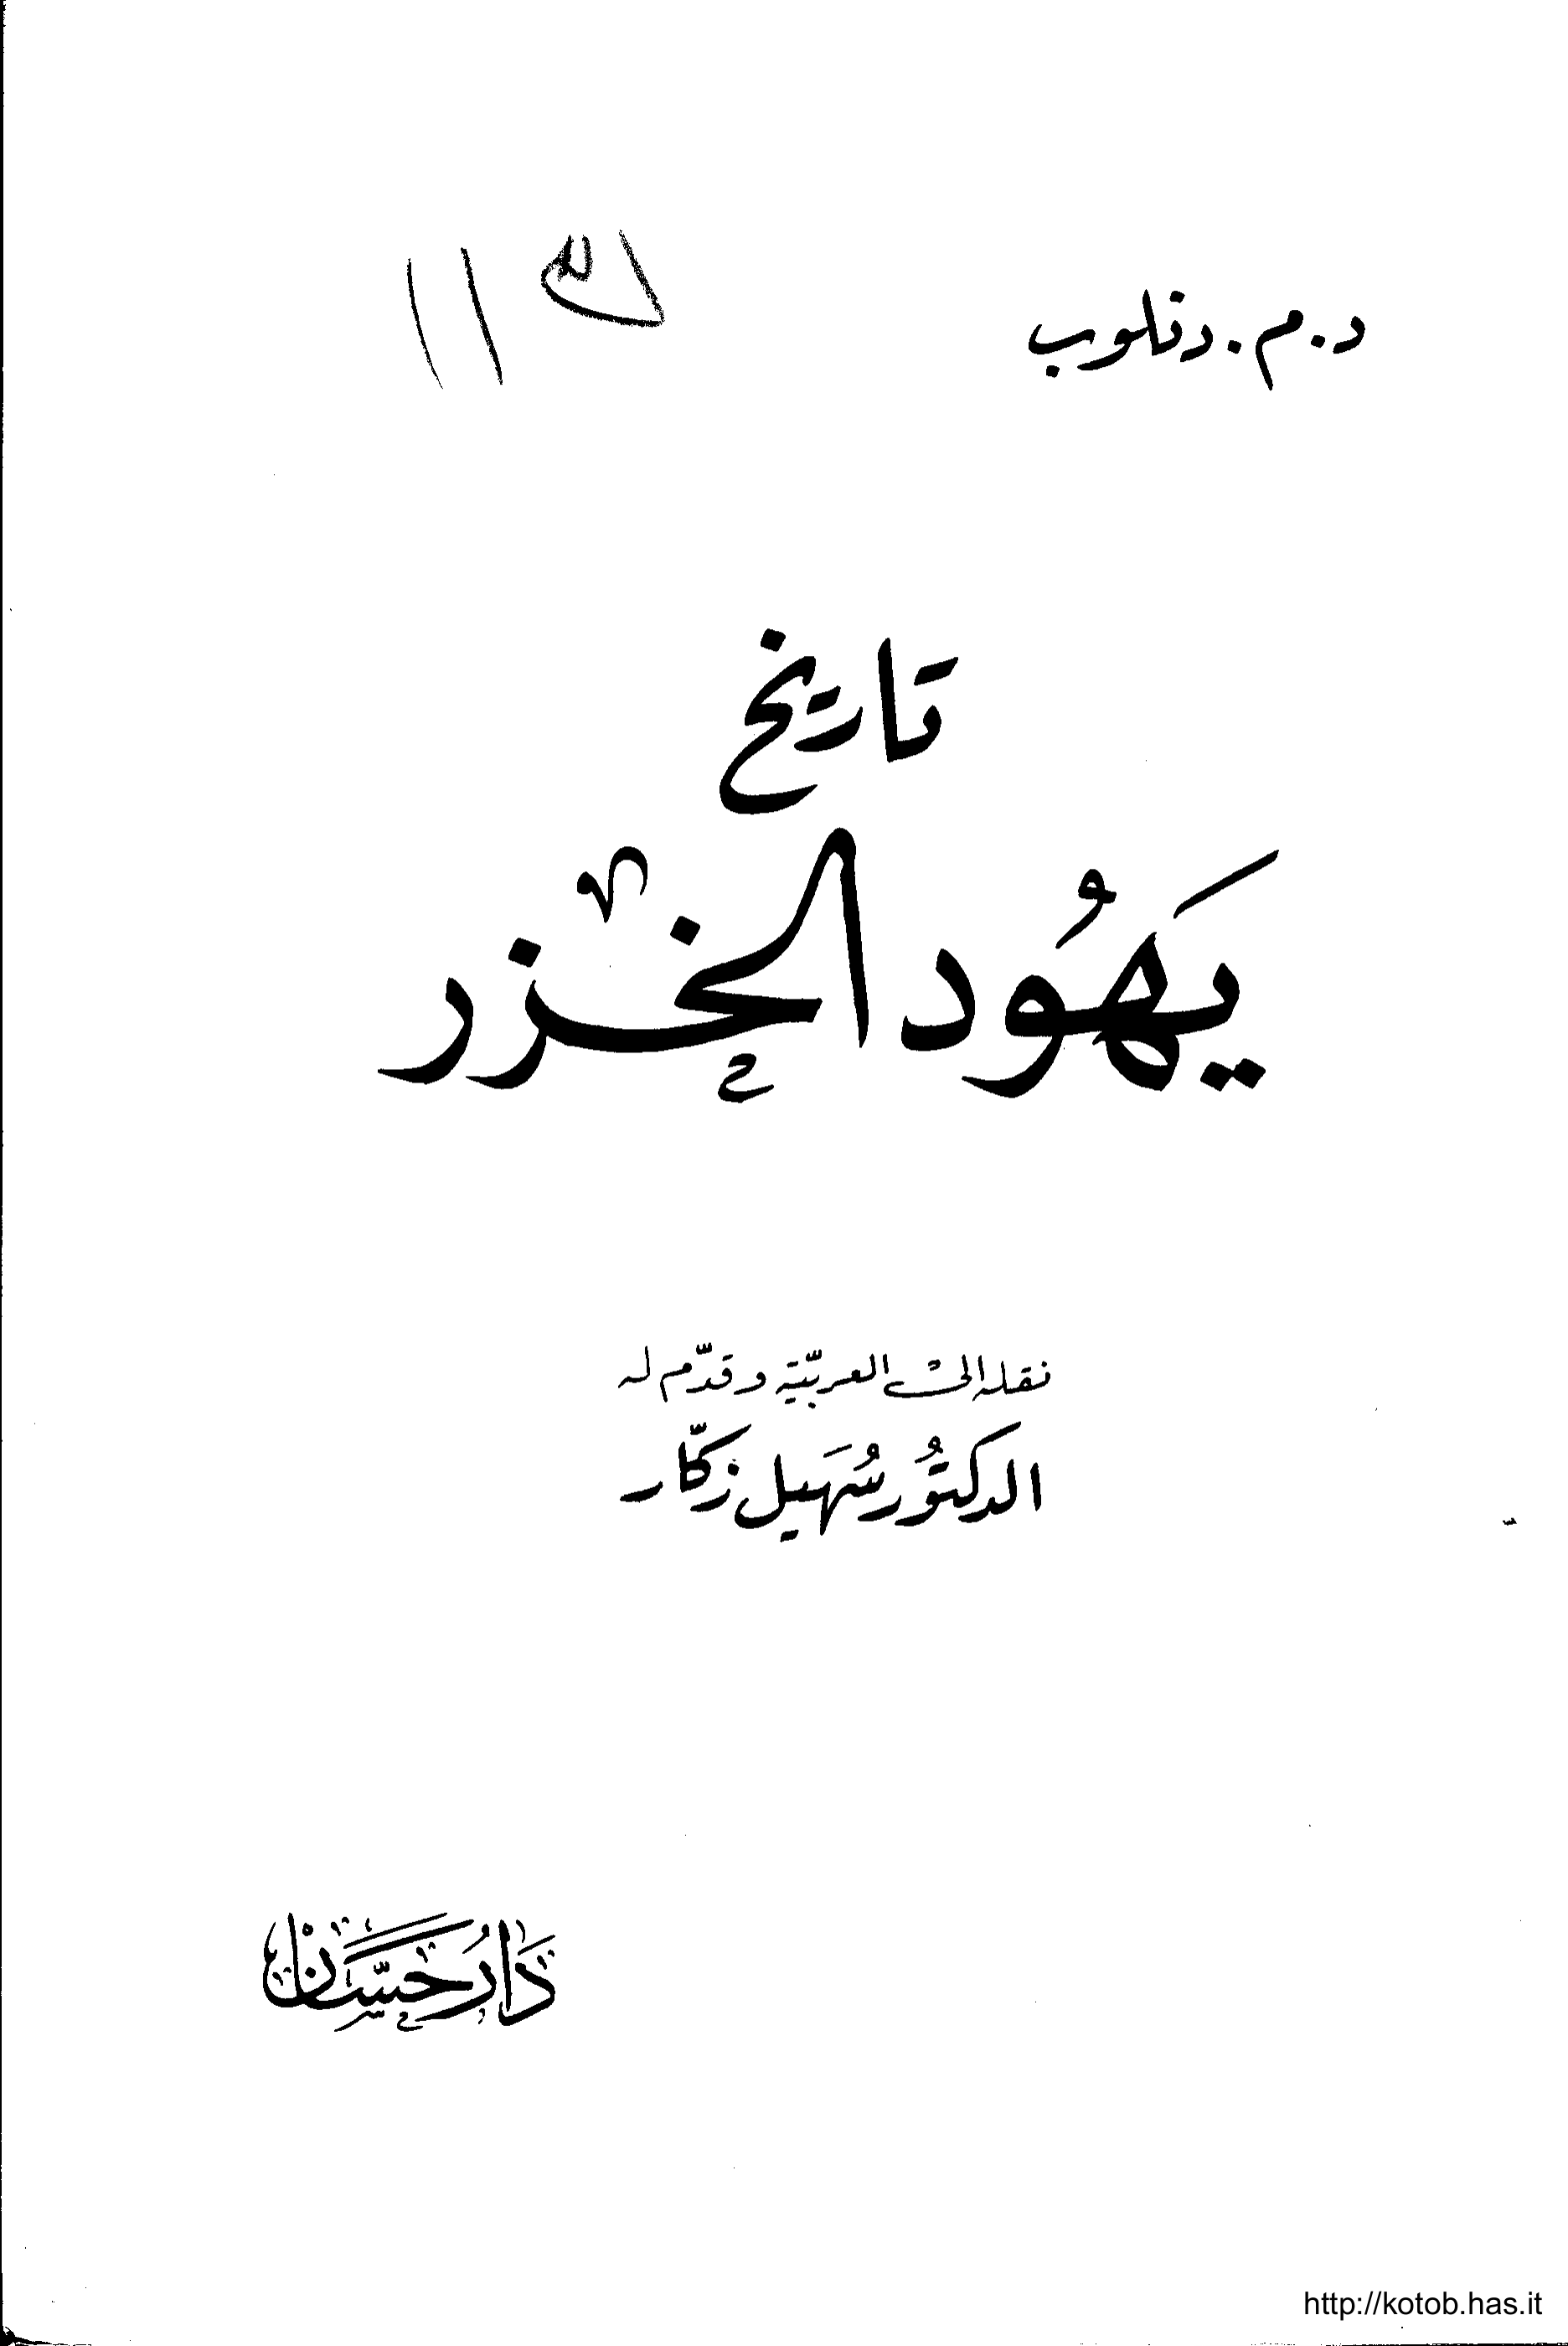 د.م.دنلوب
تاريخ
يَهُود الخزر
نقله إلى العربيّة وقدّم له
الدكتُور سُهَيل زكّار
دَارُ حَسَّان
http://kotob.has.it